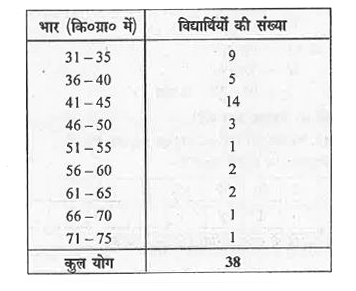 भार (कि०ग्रा० में) विद्यार्थियों की संख्या
31 – 35 9
36 – 40 5
41 – 45 14
46 – 50 3
51 – 55 1
56 – 60 2
61 – 65 2
66 – 70 1
71 – 75 1
कुल योग 38